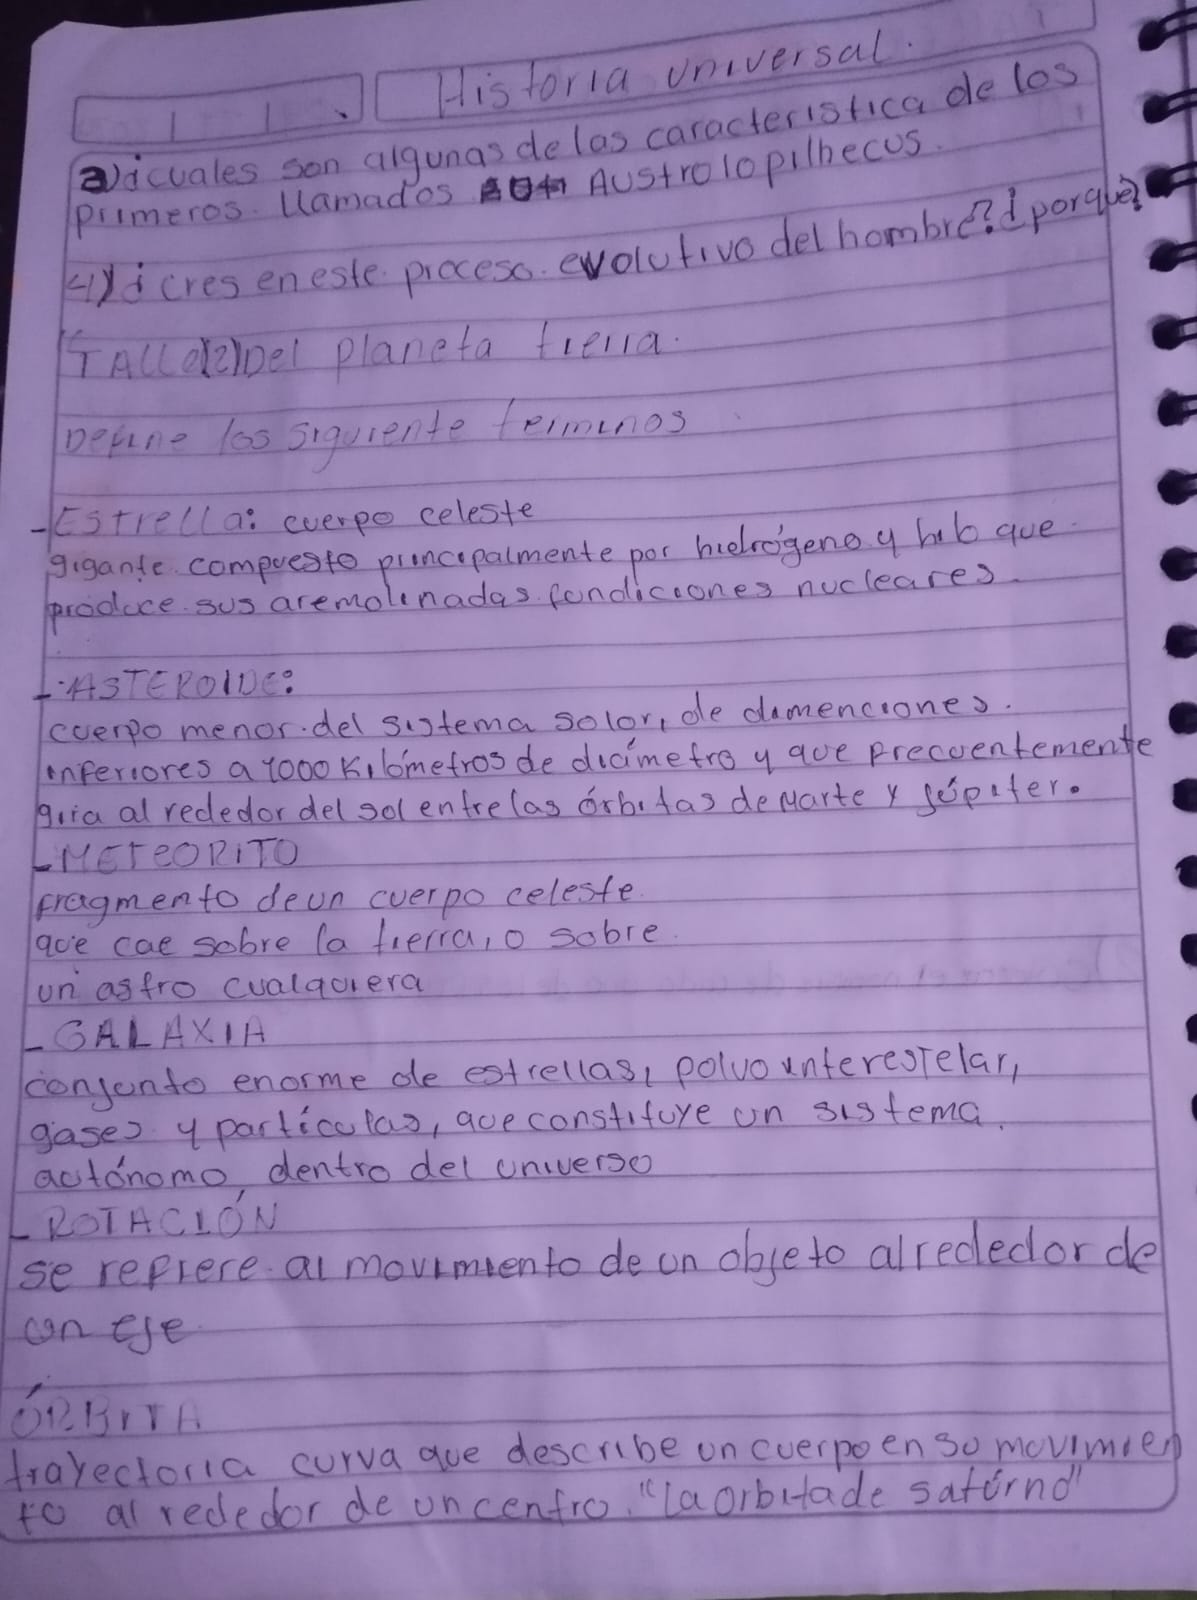 Historia universal.
a) ¿cuales son algunas de las caracteristica de los
primeros. llamados Austrolopilhecus.
4) ¿cres en este. proceso. evolutivo del hombre? ¿porque?
TAlle(2)Del planeta tierra.
Define los siguiente terminos
-Estrella: cuerpo celeste
gigante. compuesto principalmente por hidrógeno y que
produce. sus aremolinadas. fundiciones nucleares.
-ASTEROIDE:
cuerpo menor. del sistema solor, de dimenciones.
inferiores a 1000 Kilómetros de diámetro y que Frecuentemente
gira al rededor del sol entre las órbitas de Marte y Júpiter.
-METEORITO
Fragmento de un cuerpo celeste.
que cae sobre la tierra, o sobre.
un astro cualquiera
-GALAXIA
conjunto enorme de estrellas, polvo interestelar,
gases y partículas, que constituye un sistema.
autónomo, dentro del universo
-ROTACIÓN
se refiere. al movimiento de un objeto al rededor de
un eje.
ÓRBITA
trayectoria curva que describe un cuerpo en so movimien
to al rededor de un centro. "la orbita de satúrno"